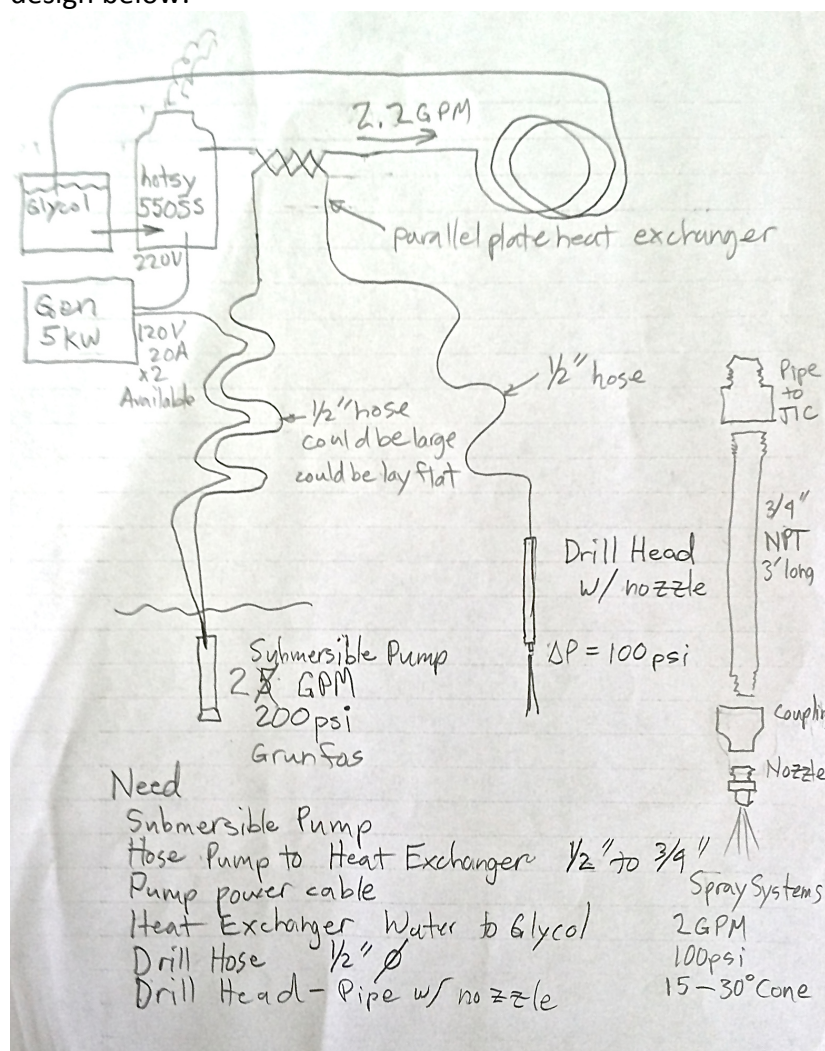 design below:
2.2GPM
hotsy
5505S
Glycol
parallel plate heat exchanger
220V
Gen
5kW
120V
20A
x2
Available
1/2" hose
1/2" hose
could be large
could be lay flat
Pipe
to
JIC
3/4"
NPT
3' long
Drill Head
w/ nozzle
ΔP = 100psi
Submersible Pump
2 GPM
200psi
Grunfas
Couplin
Nozzle
Need
Submersible Pump
Hose Pump to Heat Exchanger 1/2" to 3/4"
Pump power cable
Heat Exchanger Water to Glycol
Drill Hose 1/2" Ø
Drill Head - Pipe w/ nozzle
Spray Systems
2GPM
100psi
15-30° Cone